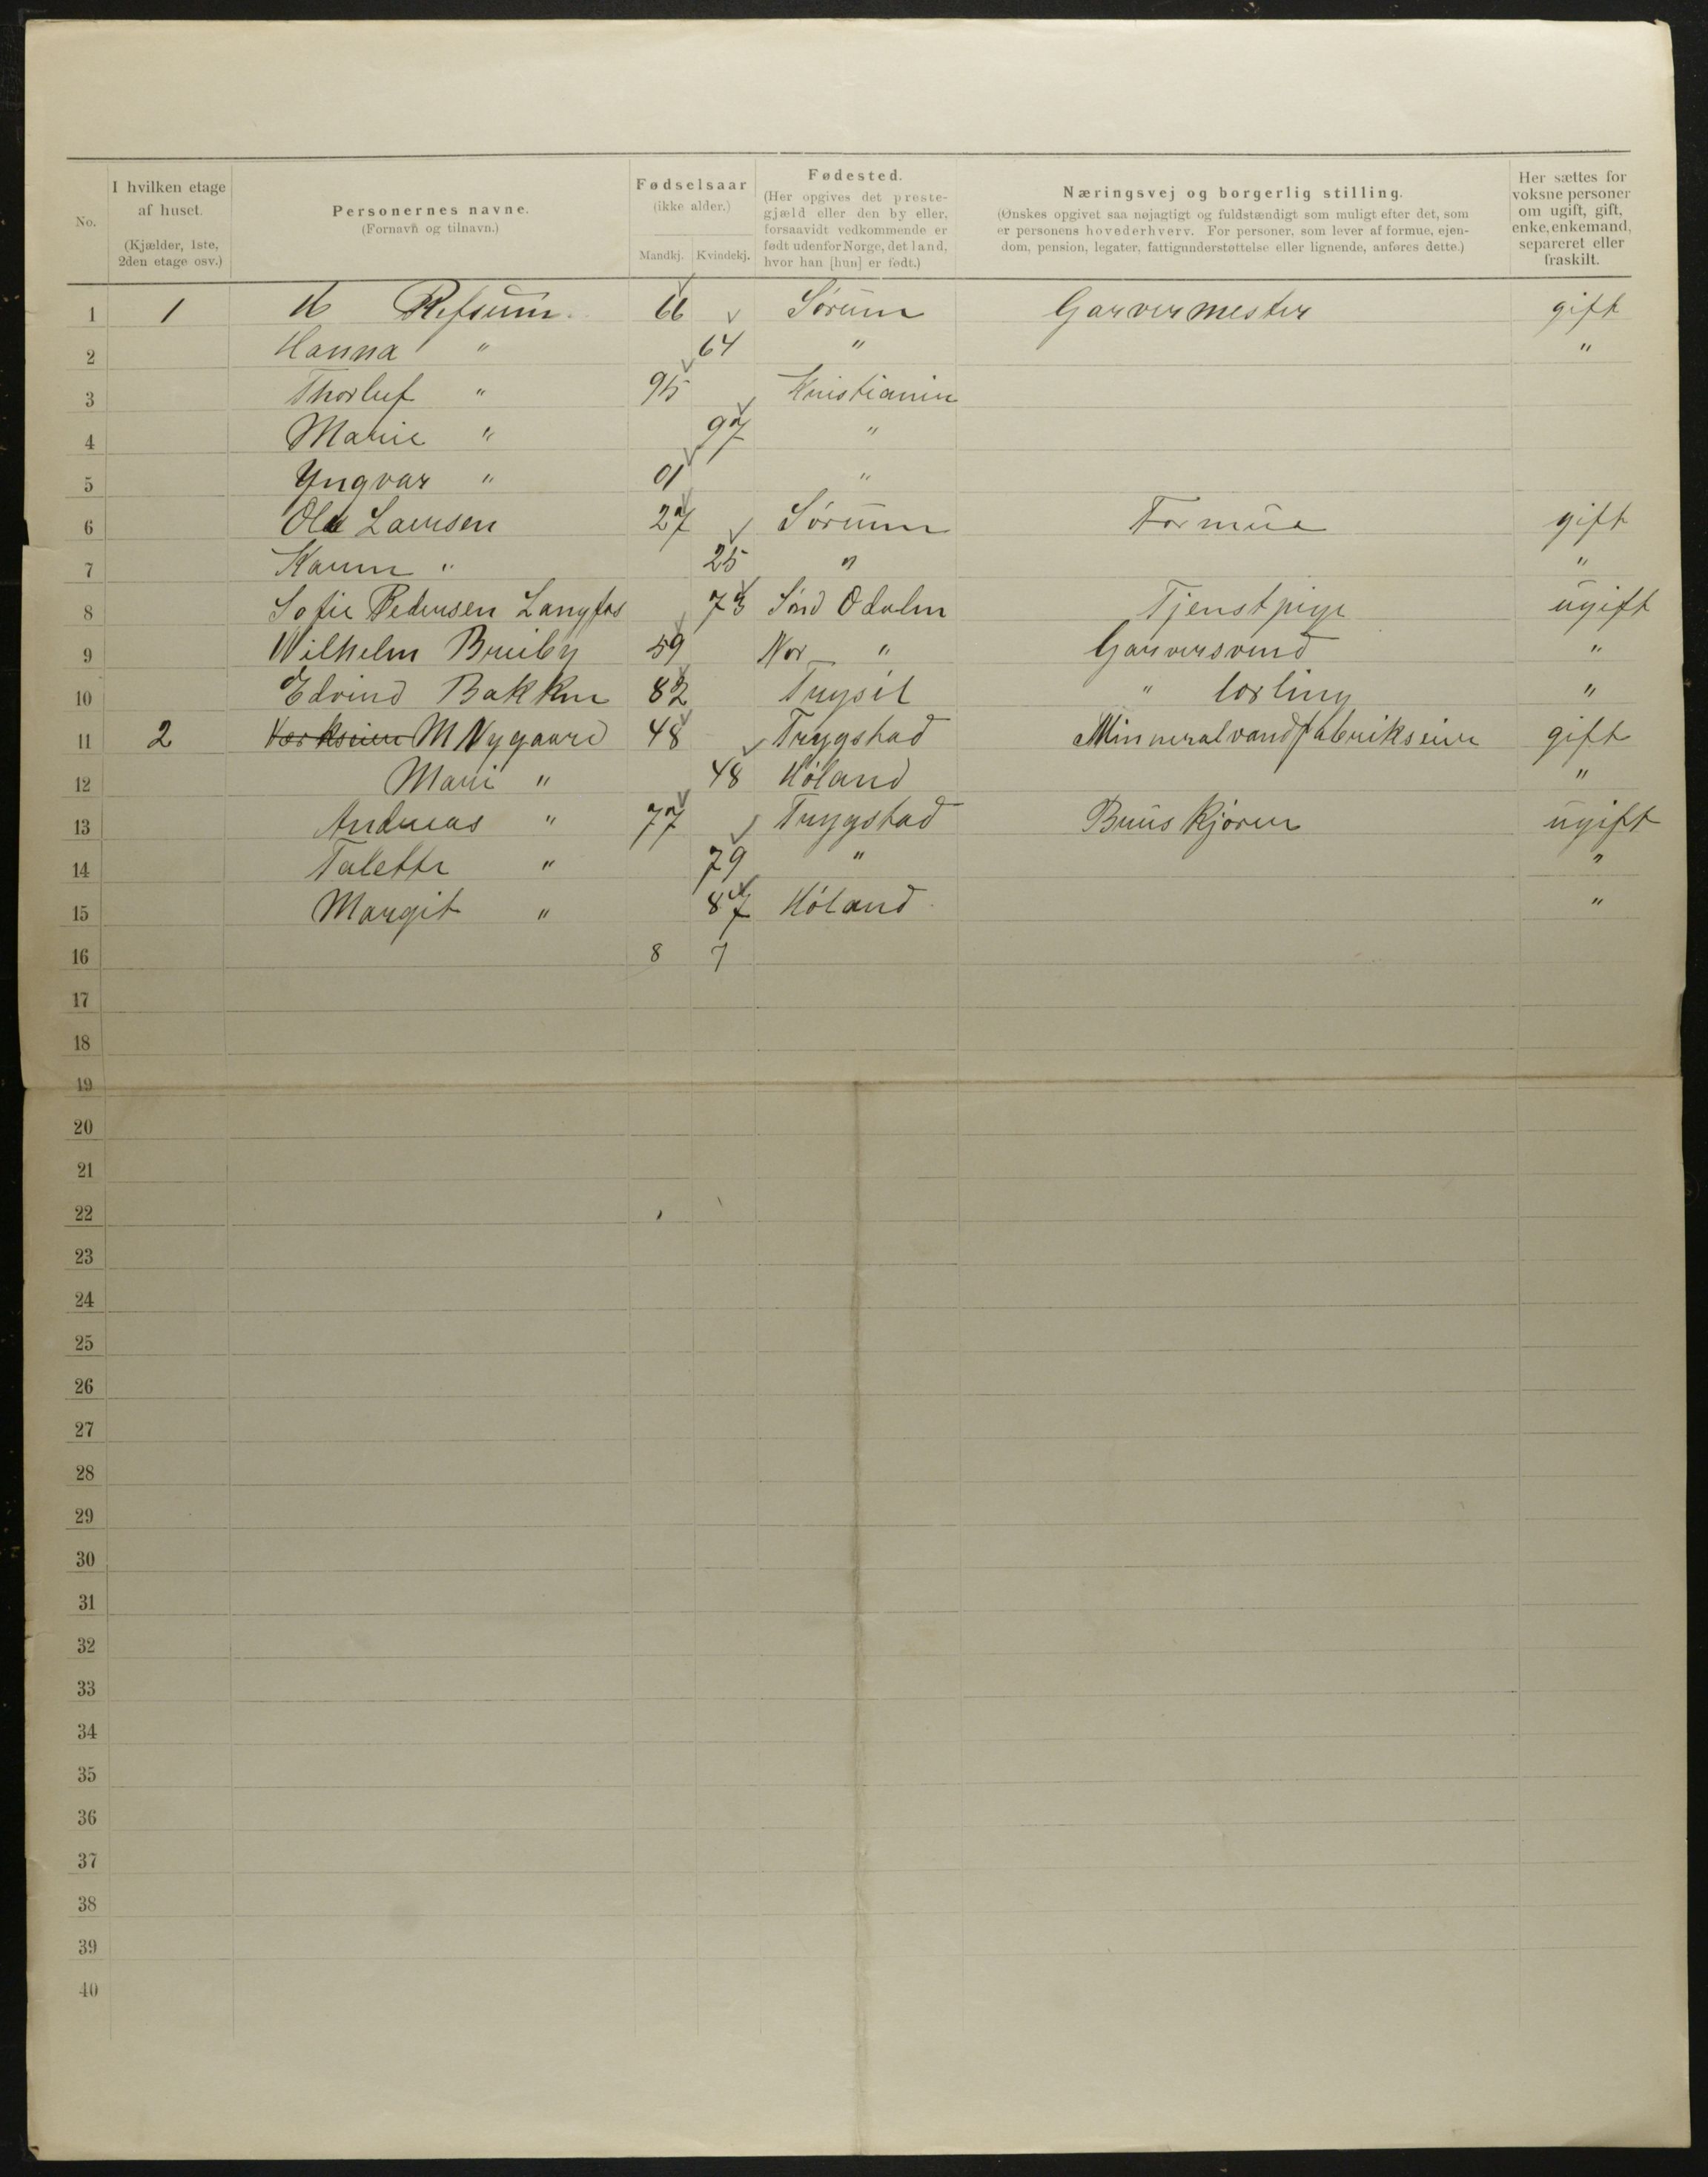 No.
I hvilken etage af huset.
(Kjælder, 1ste, 2den etage osv.)
Personernes navne.
(Fornavn og tilnavn.)
Fødselsaar
(ikke alder.)
Mandkj. Kvindekj.
Fødested.
(Her opgives det prestegjæld eller den by eller, forsaavidt vedkommende er født udenfor Norge, det land, hvor han [hun] er født.)
Næringsvej og borgerlig stilling.
(Ønskes opgivet saa nøjagtigt og fuldstændigt som muligt efter det, som er personens hovederhverv. For personer, som lever af formue, ejendom, pension, legater, fattigunderstøttelse eller lignende, anføres dette.)
Her sættes for voksne personer om ugift, gift, enke, enkemand, separeret eller fraskilt.
1 1 Refsum 66 Sørum Garvermester gift
2 Hanna " 64 " "
3 Thorluf " 95 Kristiania
4 Marie " 97 "
5 Yngvar " 01 "
6 Ole Laursen 27 Sørum Formue gift
7 Karen " 25 " "
8 Sofie Pedersen Langfos 73 Sønd Odalen Tjenstpige ugift
9 Wilhelm Bruiby 59 Nor " Garversvend "
10 Edvind Bakken 82 Trysil " lærling "
11 2 Værkseier M Nygaard 48 Trygstad Minneralvandfabrikseier gift
12 Mari " 48 Høland "
13 Andreas " 77 Trygstad Bruuskjører ugift
14 Talette " 79 " "
15 Margit " 87 Høland "
16 8 7
17
18
19
20
21
22
23
24
25
26
27
28
29
30
31
32
33
34
35
36
37
38
39
40